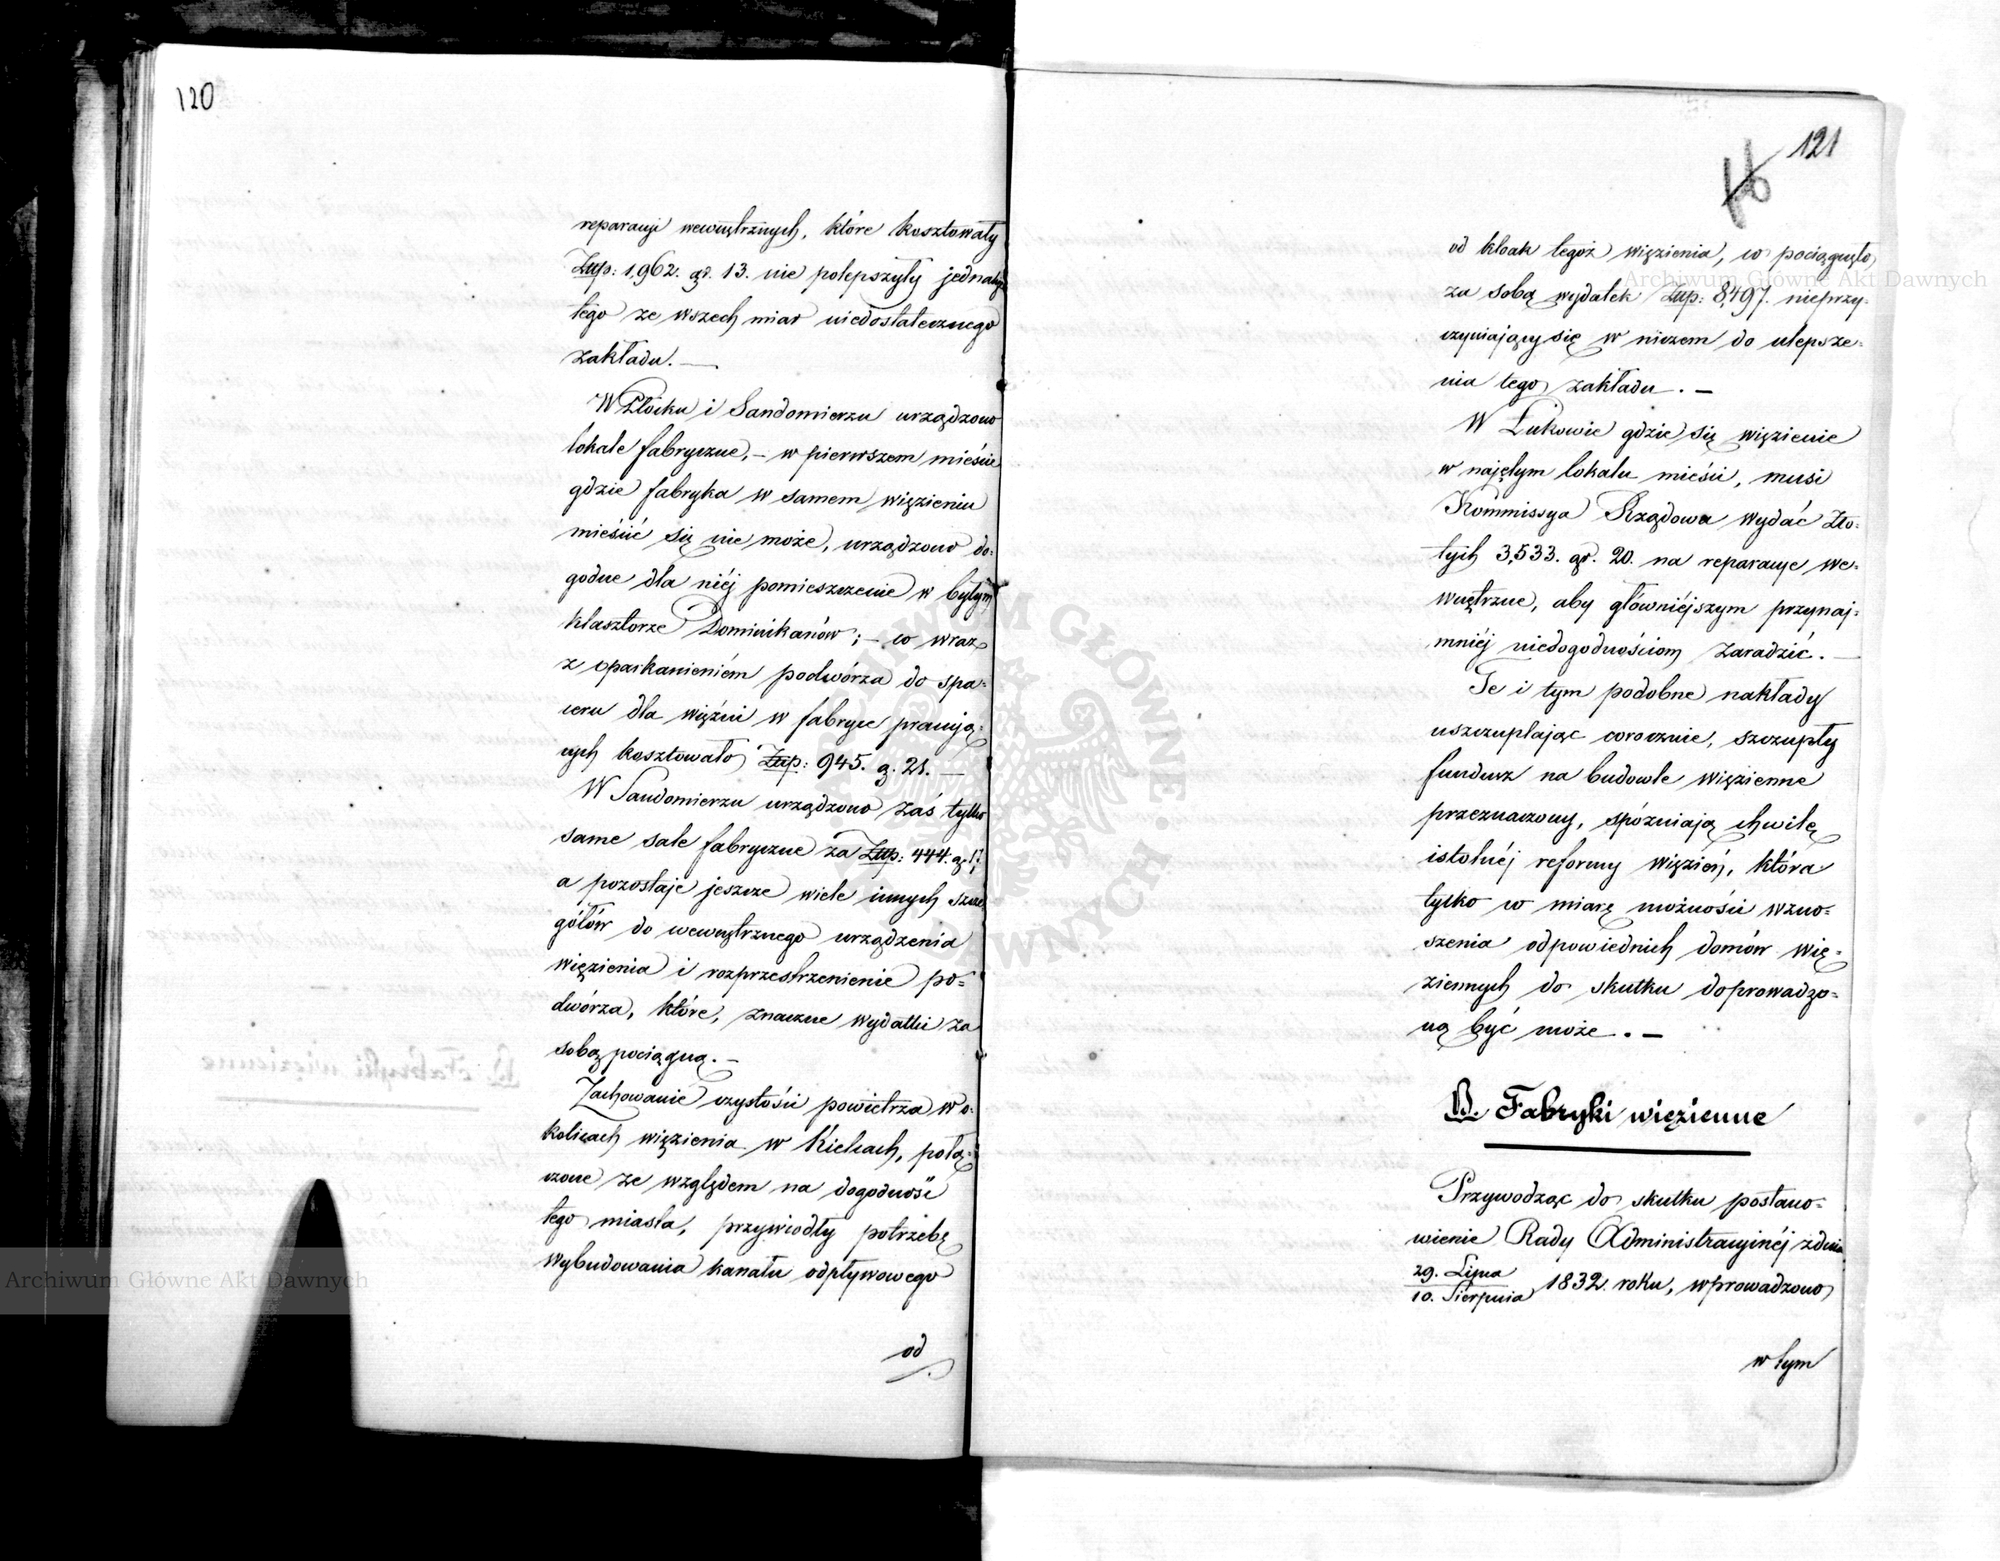 120
reparacyi wewnętrznych, które kosztowały
Złłp: 1,962. gr. 13. nie polepszyły jednak
tego ze wszech miar niedostatecznego
zakładu. —
W Płocku i Sandomierzu urządzono
lokale fabryczne, — w pierwszem mieście
gdzie fabryka w samem więzieniu
mieścić się nie może, urządzono do=
godne dla niéj pomieszczenie w byłym
klasztorze Dominikanów; — co wraz
z oparkanieniém podwórza do spa=
ceru dla więźni w fabryce pracują=
cych kosztowało Złłp: 945. g. 21. —
W Sandomierzu urządzono zaś tylko
same sale fabryczne za Złłp: 444. g. 17.
a pozostaje jeszcze wiele innych szcze
gółów do wewnętrznego urządzenia
więzienia i rozprzestrzenienie po=
dwórza, które, znaczne wydatki za
sobą pociągną. —
Zachowanie czystości powietrza w o=
kolicach więzienia w Kielcach, połą=
czone ze względem na dogodność
tego miasta, przywiodły potrzebę
wybudowania kanału odpływowego
od
121
16
od kloak tegoż więzienia, co pociągnęło
za sobą wydatek Złłp: 8,497. nieprzy=
czyniający się w niczem do ulepsze=
nia tego zakładu. —
W Łukowie gdzie się więzienie
w najętym lokalu mieści, musi
Kommissya Rządowa wydać Zło=
tych 3,533. gr. 20. na reparacye we=
wnętrzne, aby główniejszym przynaj=
mniéj niedogodnościom zaradzić. —
Te i tym podobne nakłady
uszczuplając corocznie, szczupły
fundusz na budowle więzienne
przeznaczony, spóźniają chwilę
istotnéj reformy więzień, która
tylko w miarę możności wzno=
szenia odpowiednich domów wię=
ziennych do skutku doprowadzo=
ną być może. —
B. Fabryki więzienne
Przywodząc do skutku postano=
wienie Rady Administracyjnéj z dnia
29. Lipca
10. Sierpnia 1832. roku, wprowadzono
w tym
Archiwum Główne Akt Dawnych
Archiwum Główne Akt Dawnych
ARCHIWUM GŁÓWNE AKT DAWNYCH